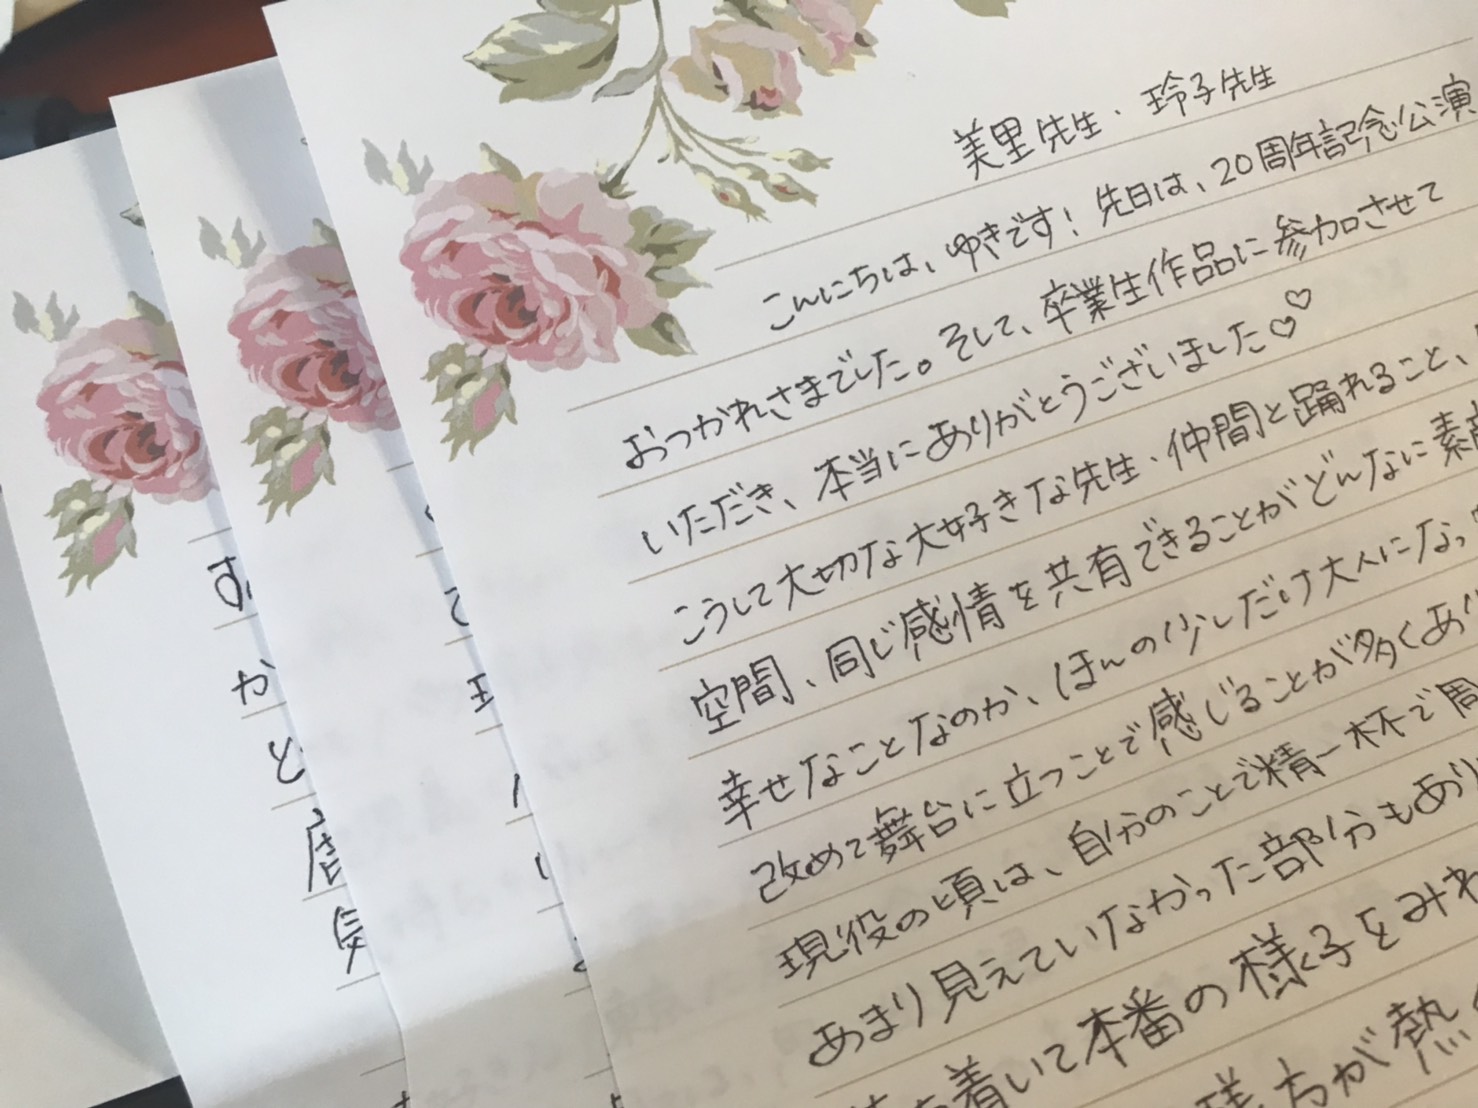 美里先生・玲子先生
こんにちは、ゆきです！先日は、20周年記念公演
おつかれさまでした。そして、卒業生作品に参加させて
いただき、本当にありがとうございました♡♡
こうして大切な大好きな先生・仲間と踊れること、
空間、同じ感情を共有できることがどんなに素
幸せなことなのか、ほんの少しだけ大人になっ
改めて舞台に立つことで感じることが多くあり
現役の頃は、自分のことで精一杯で周
あまり見えていなかった部分もあり
着いて本番の様子をみれ
様方が熱
か
と
気